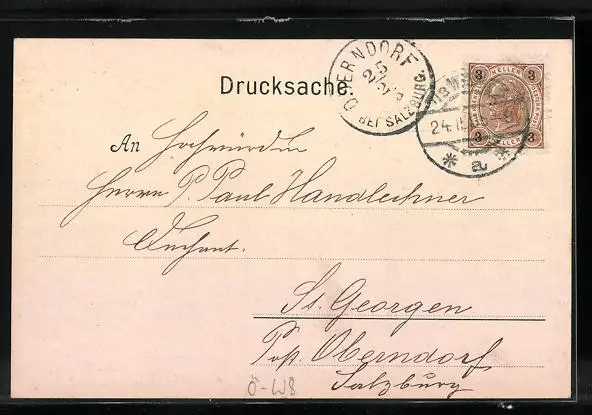 Drucksache.
OBERNDORF
BEI SALZBURG.
3 HELLER 3
24
* a *
3 HELLER 3
An Hochwürden
Herrn P. Paul Handlechner
St. Georgen
Post Oberndorf
Salzburg
Ö-W8